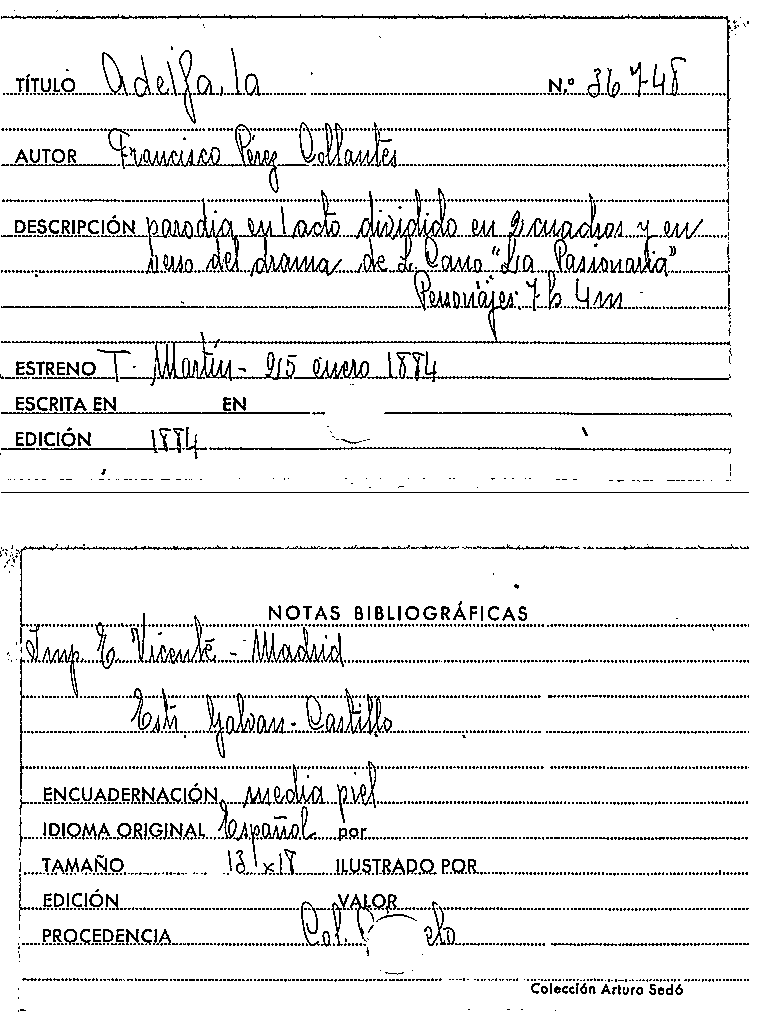 TÍTULO Adelfa, la N.º 36748
AUTOR Francisco Pérez Collantes
DESCRIPCIÓN parodia en 1 acto dividido en 2 cuadros y en
verso del drama de L. Cano "La Pasionaria"
Personajes: 7 h 4 m
ESTRENO T. Martín - 25 enero 1884
ESCRITA EN EN
EDICIÓN 1884
NOTAS BIBLIOGRÁFICAS
Imp E. Vicente - Madrid
Estr. Galvan - Castillo
ENCUADERNACIÓN media piel
IDIOMA ORIGINAL Español por
TAMAÑO 13 x 18 ILUSTRADO POR
EDICIÓN VALOR
PROCEDENCIA Col.
Colección Arturo Sedó